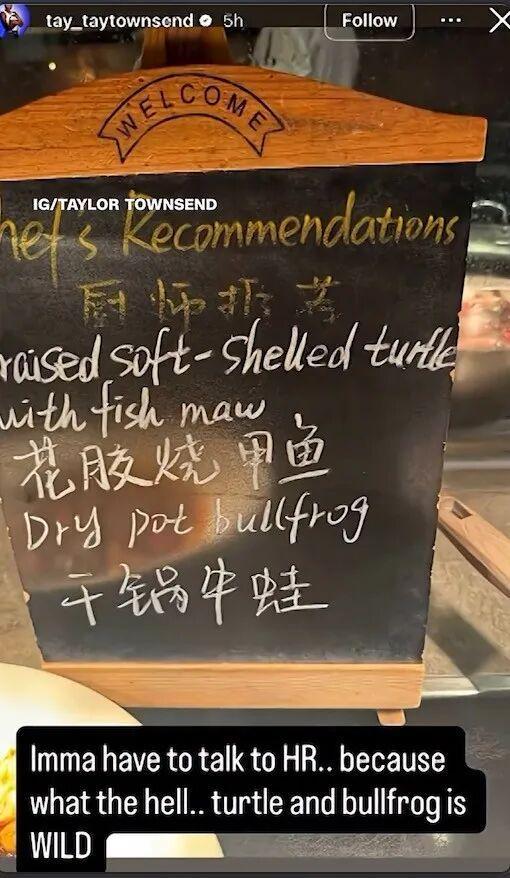 tay_taytownsend 5h Follow
WELCOME
IG/TAYLOR TOWNSEND
hef's Recommendations
厨师推荐
raised soft-shelled turtle
with fish maw
花胶烧甲鱼
Dry pot bullfrog
干锅牛蛙
Imma have to talk to HR.. because
what the hell.. turtle and bullfrog is
WILD